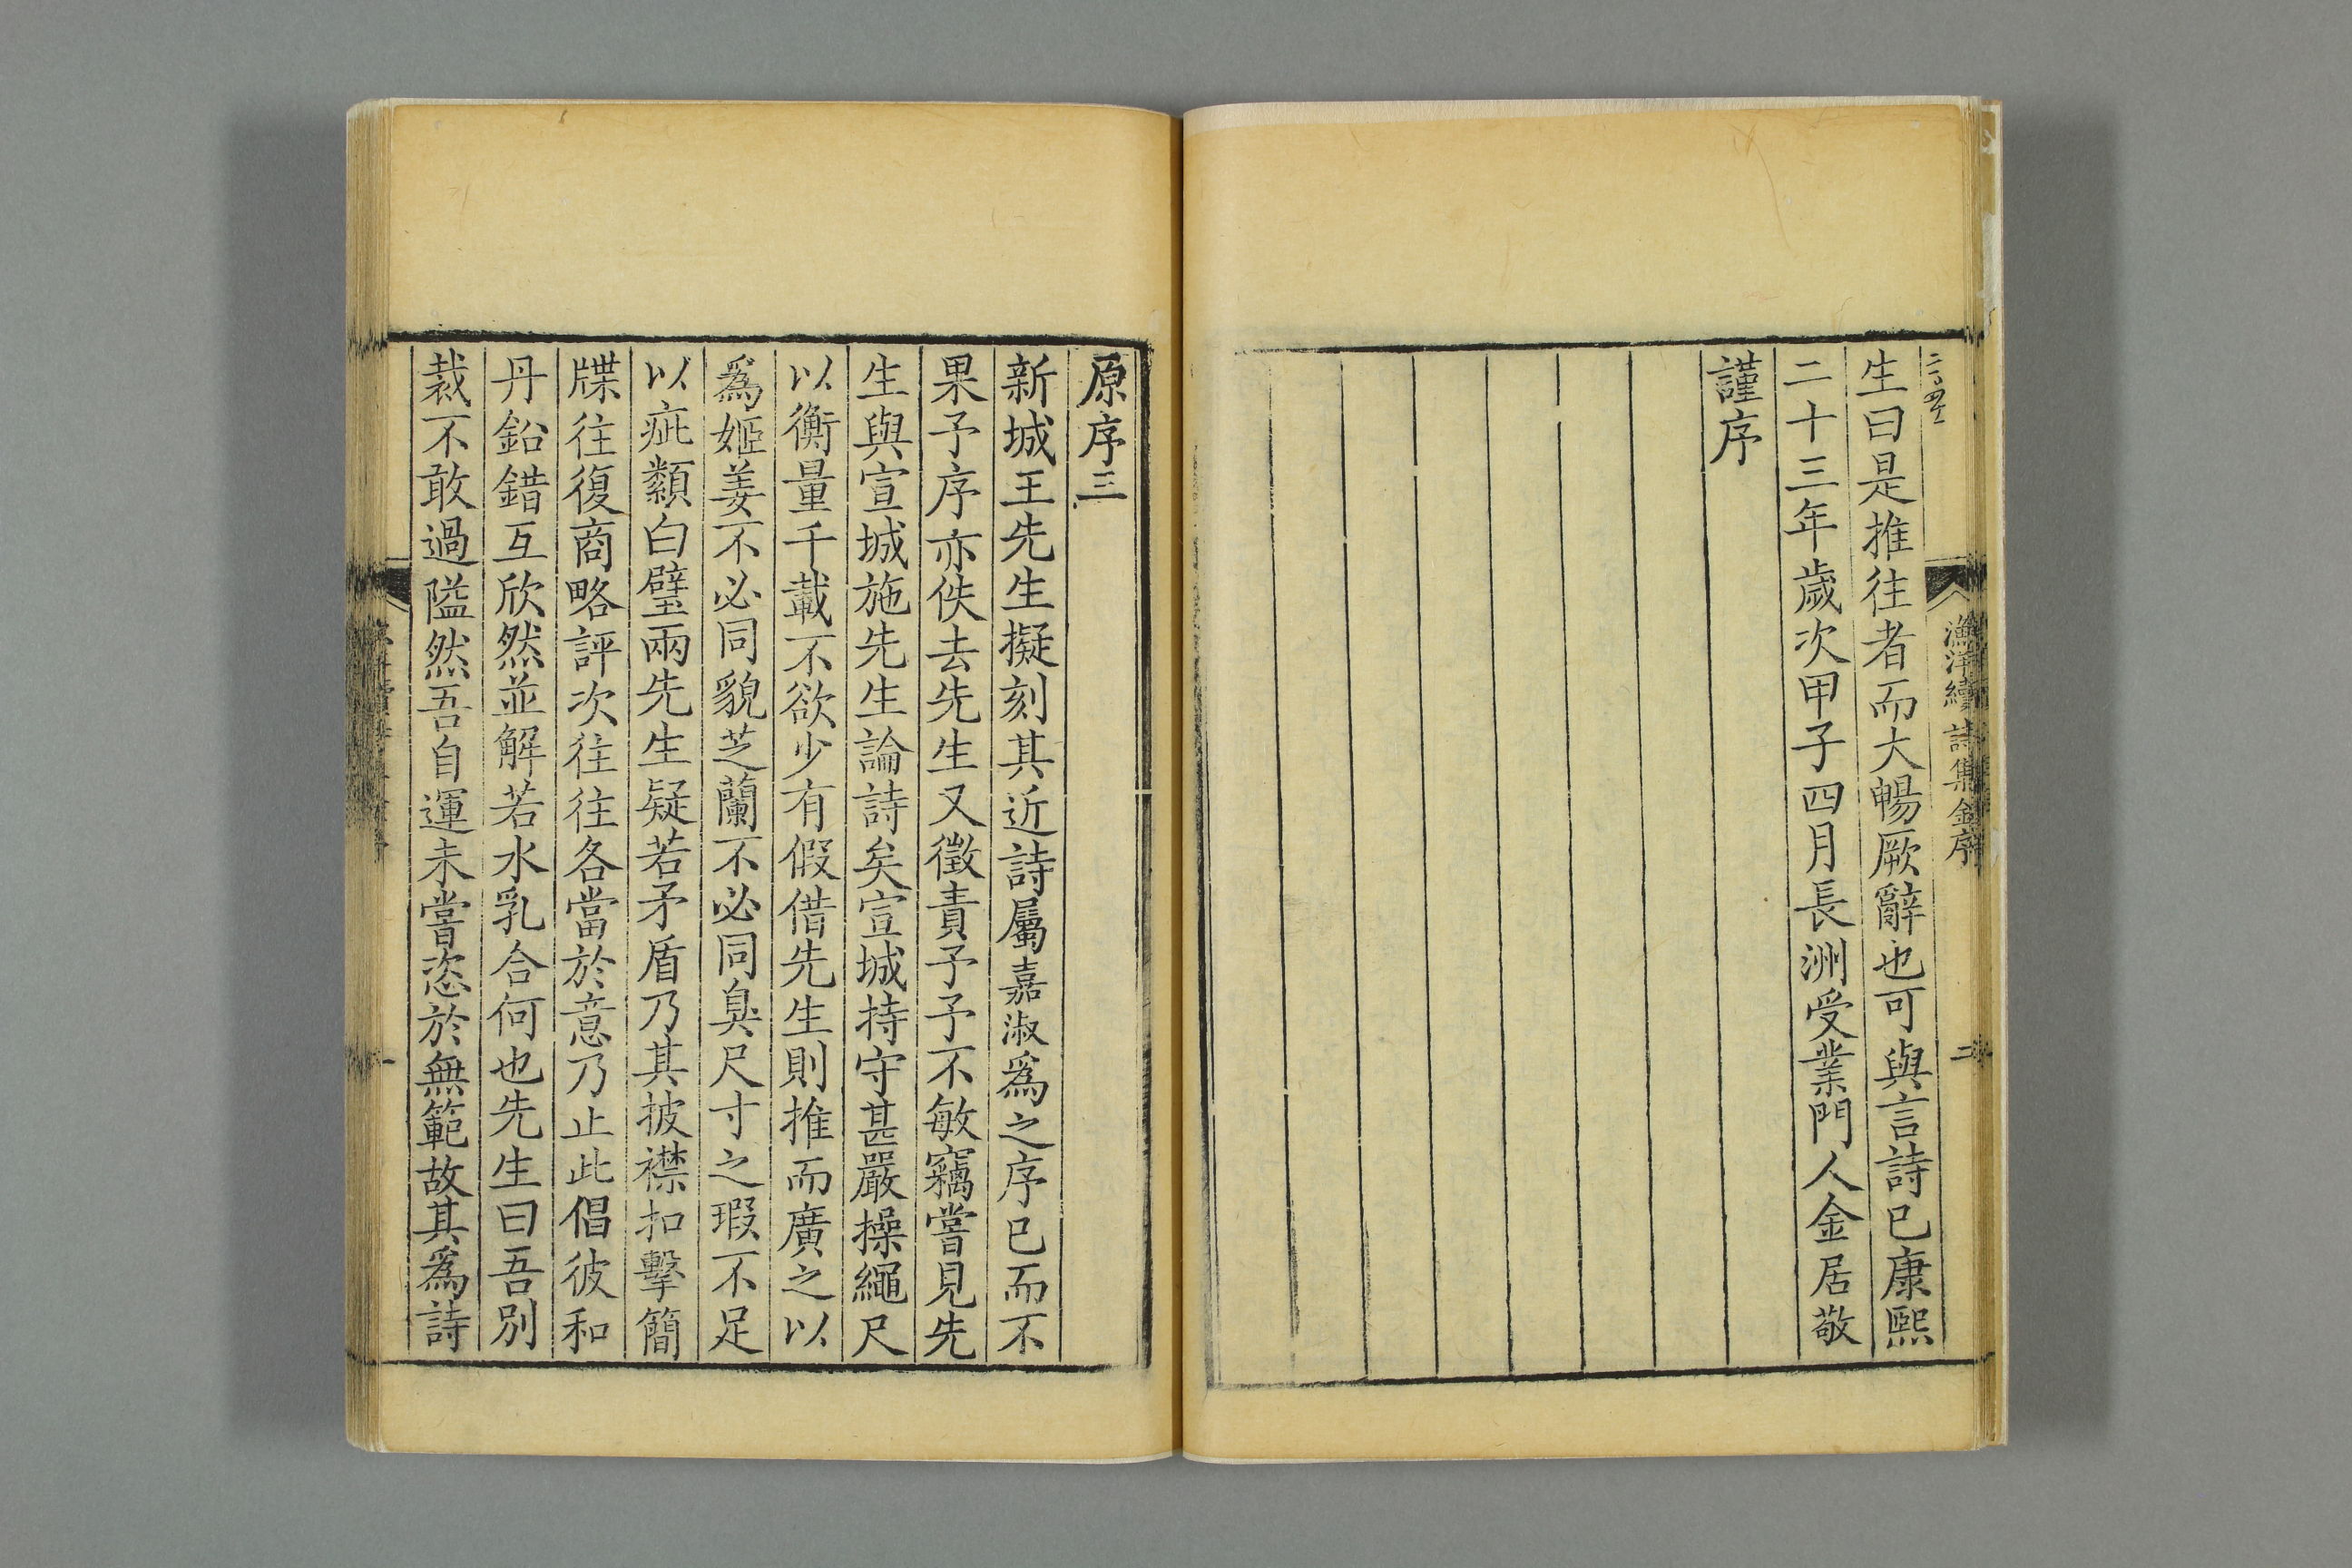 漁洋續詩集金序
二
生曰是推往者而大暢厥辭也可與言詩已康熙
二十三年歲次甲子四月長洲受業門人金居敬
謹序
原序三
新城王先生擬刻其近詩屬嘉淑爲之序已而不
果予序亦佚去先生又徵責予予不敏竊嘗見先
生與宣城施先生論詩矣宣城持守甚嚴操繩尺
以衡量千載不欲少有假借先生則推而廣之以
爲姬姜不必同貌芝蘭不必同臭尺寸之瑕不足
以疵纇白璧兩先生疑若矛盾乃其披襟扣擊簡
牒往復商略評次往往各當於意乃止此倡彼和
丹鉛錯互欣然並解若水乳合何也先生曰吾別
裁不敢過隘然吾自運未嘗恣於無範故其爲詩